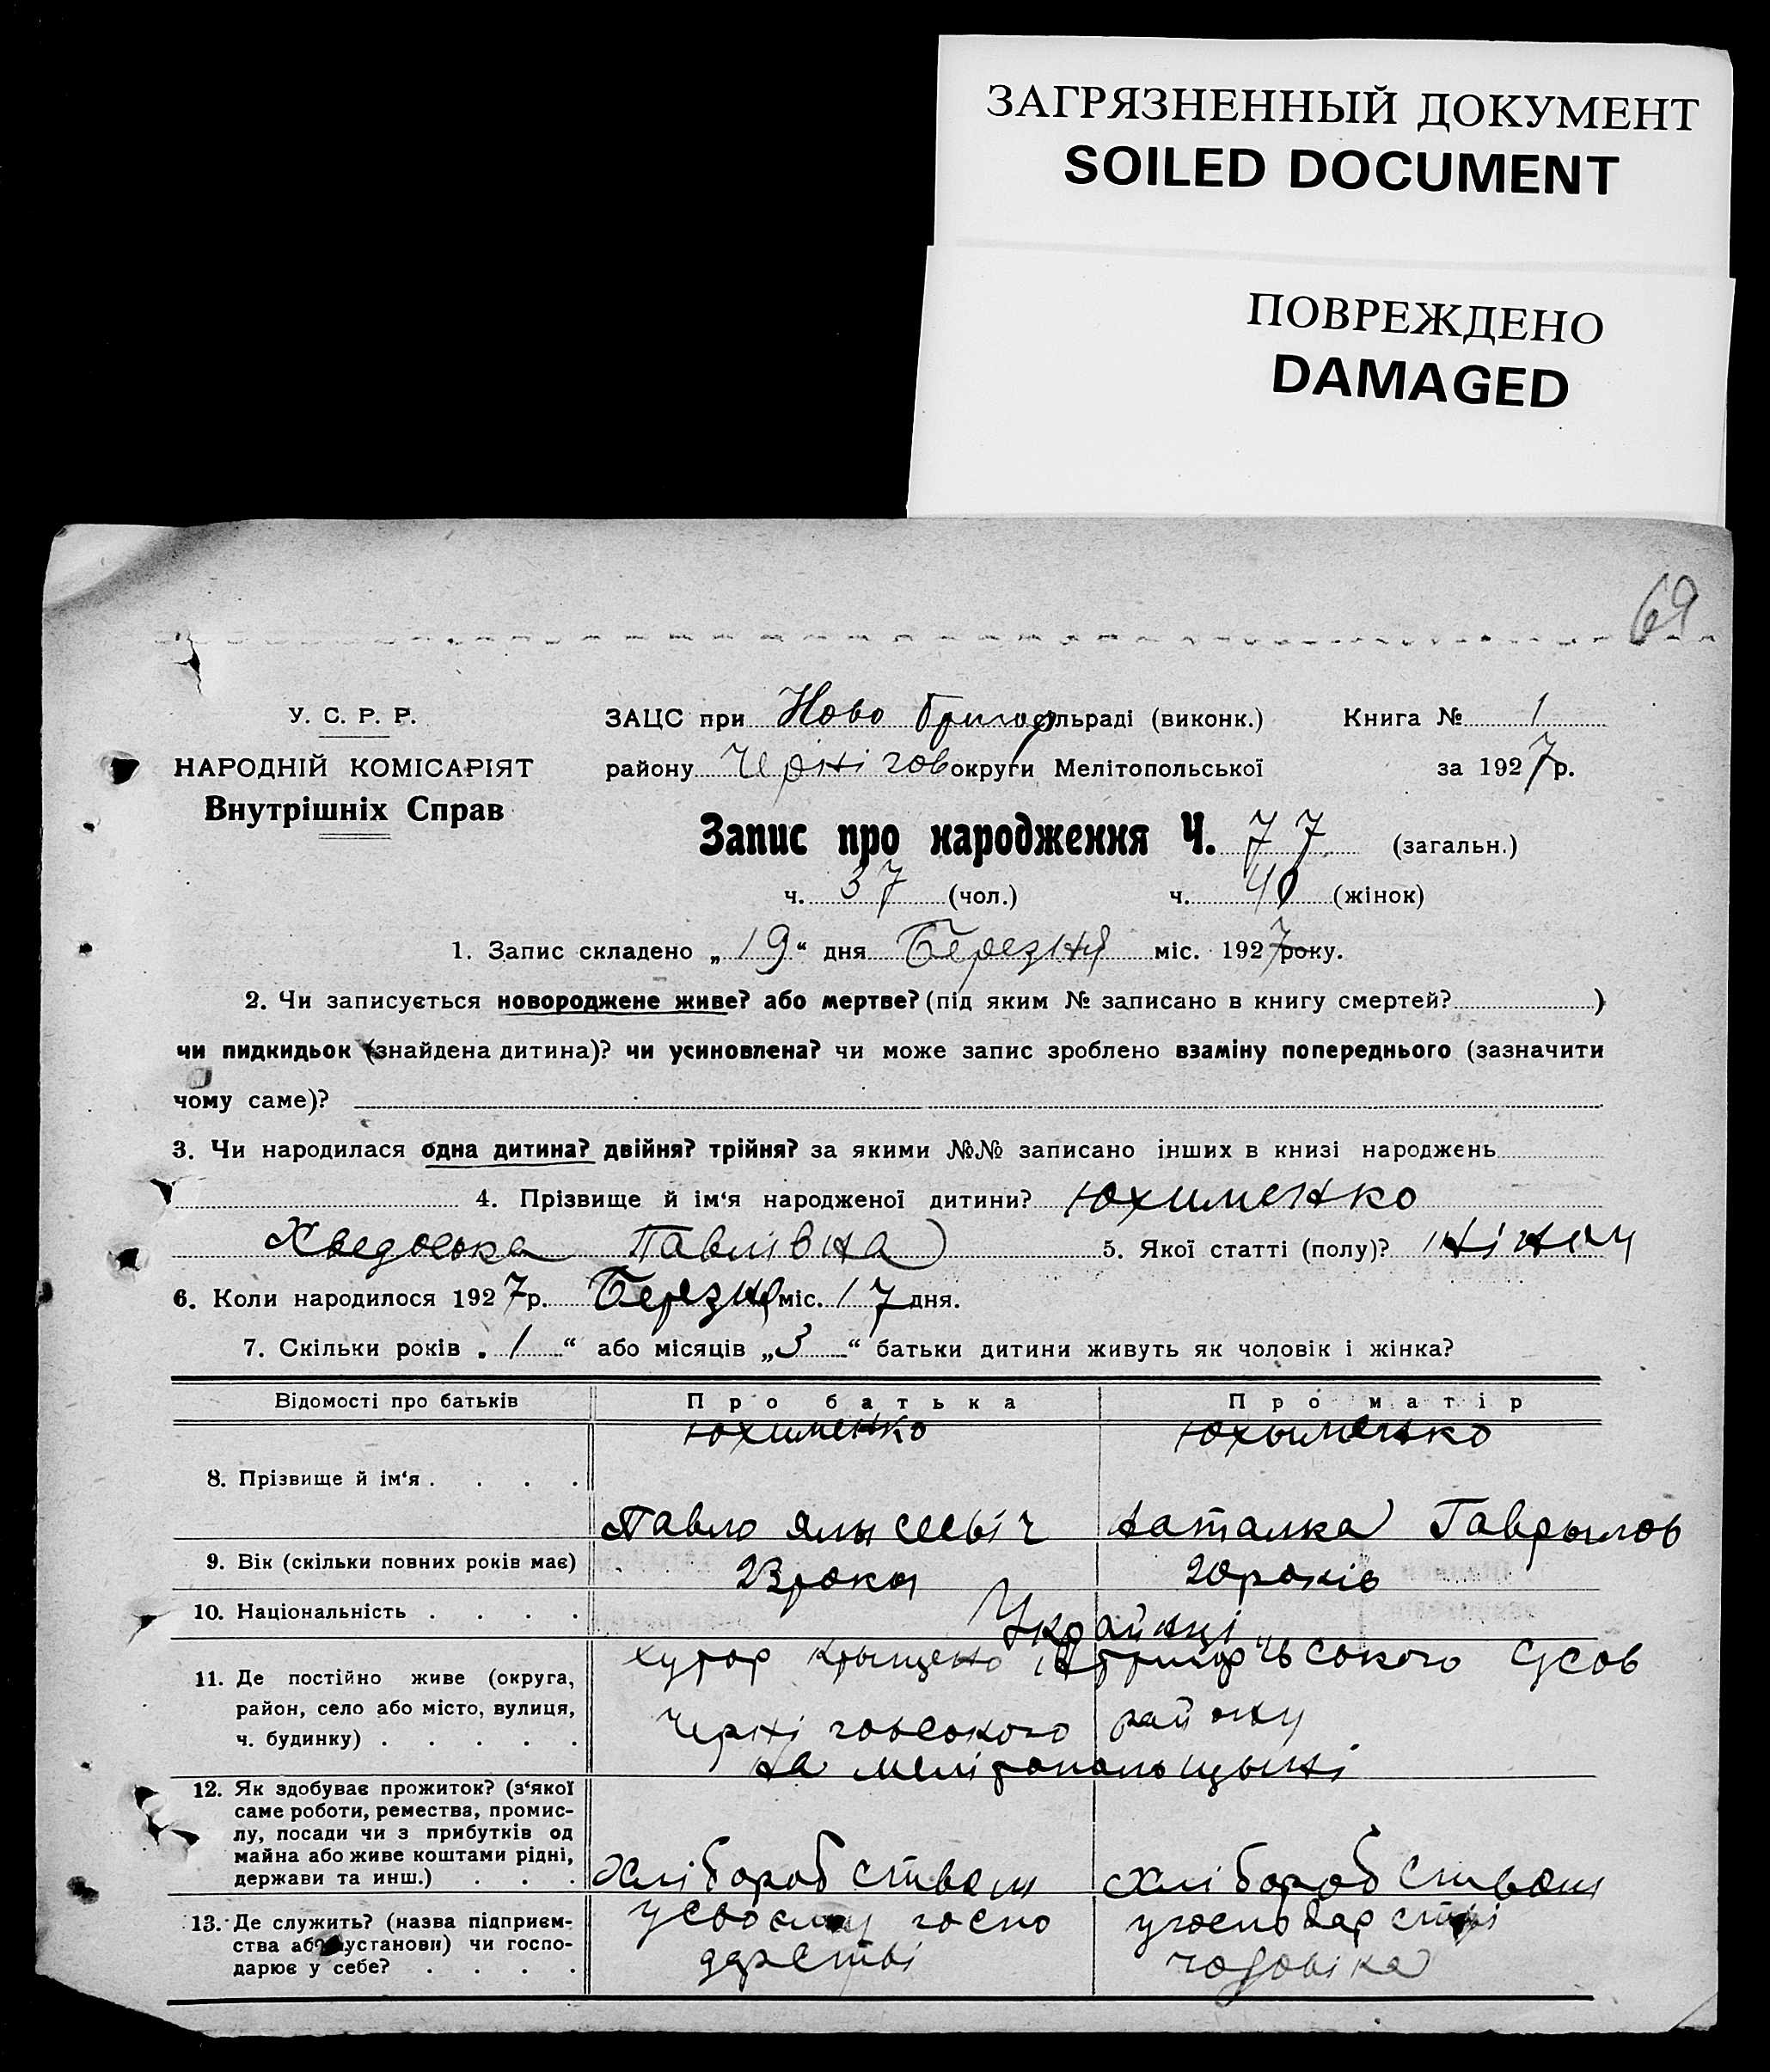 ЗАГРЯЗНЕННЫЙ ДОКУМЕНТ
SOILED DOCUMENT
ПОВРЕЖДЕНО
DAMAGED
69
У. С. Р. Р.
НАРОДНІЙ КОМІСАРІЯТ
Внутрішніх Справ
ЗАЦС при Ново Григор сільраді (виконк.) Книга № 1
району Черніговокруги Мелітопольської за 1927р.
Запис про народження Ч. 77 (загальн.)
ч. 37 (чол.) ч. 40 (жінок)
1. Запис складено „19“ дня Березня міс. 1927року.
2. Чи записується новороджене живе? або мертве? (під яким № записано в книгу смертей? )
чи пидкидьок (знайдена дитина)? чи усиновлена? чи може запис зроблено взаміну попереднього (зазначити
чому саме)?
3. Чи народилася одна дитина? двійня? трійня? за якими №№ записано інших в книзі народжень
4. Прізвище й ім‘я народженої дитини? Юхименко
Хведоська Павлівна 5. Якої статті (полу)?
6. Коли народилося 1927р. Березня міс. 17 дня.
7. Скільки років „1“ або місяців „3“ батьки дитини живуть як чоловік і жінка?
Відомості про батьків Про батька Про матір
Юхименко Юхыменко
8. Прізвище й ім‘я . . . .
Павло Наталка Гаврылов
9. Вік (скільки повних років має) 23роки 20років
10. Національність . . . . Украйнці
хутор Крыщено Григорьського
11. Де постійно живе (округа,
район, село або місто, вулиця,
ч. будинку) . . . . .
Черніговського району
на Мелітопольщыні
12. Як здобуває прожиток? (з‘якої
саме роботи, ремества, промис-
лу, посади чи з прибутків од
майна або живе коштами рідні,
держави та инш.) . . .
Хліборобством Хліборобством
13. Де служить? (назва підприєм-
ства або установи) чи госпо-
дарює у себе? . . . .
у своєму госпо у господарстві
дарстві чоловіка